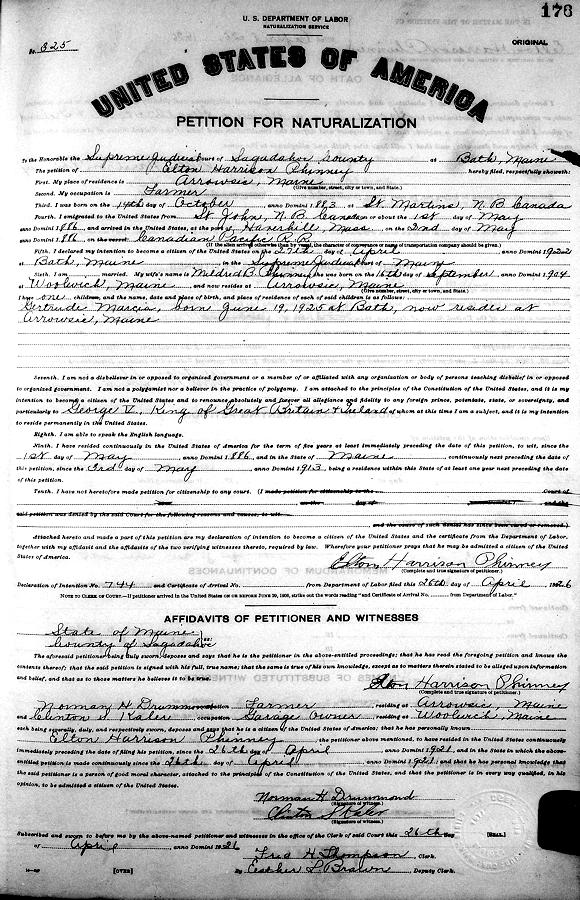 176
U. S. DEPARTMENT OF LABOR
NATURALIZATION SERVICE
No. 325
ORIGINAL
UNITED STATES OF AMERICA
PETITION FOR NATURALIZATION
To the Honorable the Supreme Judicial Court of Sagadahoc County at Bath, Maine
The petition of Elton Harrison Phinney hereby filed, respectfully showeth:
First. My place of residence is Arrowsic, Maine
(Give number, street, city or town, and State.)
Second. My occupation is Farmer
Third. I was born on the 14th day of October anno Domini 1883 at St. Martins, N.B. Canada
Fourth. I emigrated to the United States from St John, N.B. Canada on or about the 1st day of May
anno Domini 1886, and arrived in the United States, at the port of Haverhill, Mass on the 2nd day of May
anno Domini 1886, on the vessel Canadian Pacific R.R.
(If the alien arrived otherwise than by vessel, the character of conveyance or name of transportation company should be given.)
Fifth. I declared my intention to become a citizen of the United States on the 27th day of April anno Domini 1922
at Bath, Maine in the Supreme Judicial Court of Maine
Sixth. I am married. My wife's name is Mildred B. Phinney she was born on the 16th day of September anno Domini 1904
at Woolwich, Maine and now resides at Arrowsic, Maine
(Give number, street, city or town, and State.)
I have one children, and the name, date and place of birth, and place of residence of each of said children is as follows:
Gertrude Marcia, born June 19, 1925 at Bath, now resides at
Arrowsic, Maine
Seventh. I am not a disbeliever in or opposed to organized government or a member of or affiliated with any organization or body of persons teaching disbelief in or opposed
to organized government. I am not a polygamist nor a believer in the practice of polygamy. I am attached to the principles of the Constitution of the United States, and it is my
intention to become a citizen of the United States and to renounce absolutely and forever all allegiance and fidelity to any foreign prince, potentate, state, or sovereignty, and
particularly to George V, King of Great Britain & Ireland of whom at this time I am a subject, and it is my intention
to reside permanently in the United States.
Eighth. I am able to speak the English language.
Ninth. I have resided continuously in the United States of America for the term of five years at least immediately preceding the date of this petition, to wit, since the
1st day of May anno Domini 1886, and in the State of Maine continuously next preceding the date of
this petition, since the 3rd day of May anno Domini 1913, being a residence within this State of at least one year next preceding the date
of this petition.
Tenth. I have not heretofore made petition for citizenship to any court. (I made petition for citizenship to the Court of
at on the day of anno Domini and the
said petition was denied by the said Court for the following reasons and causes, to wit,
and the cause of such denial has since been cured or removed.)
Attached hereto and made a part of this petition are my declaration of intention to become a citizen of the United States and the certificate from the Department of Labor,
together with my affidavit and the affidavits of the two verifying witnesses thereto, required by law. Wherefore your petitioner prays that he may be admitted a citizen of the United
States of America.
Elton Harrison Phinney
(Complete and true signature of petitioner.)
Declaration of Intention No. 744 and Certificate of Arrival No. from Department of Labor filed this 26th day of April 1926
NOTE TO CLERK OF COURT.—If petitioner arrived in the United States ON OR BEFORE JUNE 29, 1906, strike out the words reading "and Certificate of Arrival No. from Department of Labor."
AFFIDAVITS OF PETITIONER AND WITNESSES
State of Maine
County of Sagadahoc ss:
The aforesaid petitioner being duly sworn, deposes and says that he is the petitioner in the above-entitled proceedings; that he has read the foregoing petition and knows the
contents thereof; that the said petition is signed with his full, true name; that the same is true of his own knowledge, except as to matters therein stated to be alleged upon information
and belief, and that as to those matters he believes it to be true.
Elton Harrison Phinney
(Complete and true signature of petitioner.)
Norman H. Drummond occupation Farmer residing at Arrowsic, Maine
and Clinton S. Kaler occupation Garage Owner residing at Woolwich, Maine
each being severally, duly, and respectively sworn, deposes and says that he is a citizen of the United States of America; that he has personally known
Elton Harrison Phinney the petitioner above mentioned, to have resided in the United States continuously
immediately preceding the date of filing his petition, since the 26th day of April anno Domini 1921, and in the State in which the above-
entitled petition is made continuously since the 26th day of April anno Domini 1921 and that he has personal knowledge that
the said petitioner is a person of good moral character, attached to the principles of the Constitution of the United States, and that the petitioner is in every way qualified, in his
opinion, to be admitted a citizen of the United States.
Norman H. Drummond
(Signature of witness.)
Clinton S Kaler
(Signature of witness.)
Subscribed and sworn to before me by the above-named petitioner and witnesses in the office of the Clerk of said Court this 26th day
of April anno Domini 1926
[SEAL.]
Fred H. Thompson, Clerk.
[OVER] By Esther L. Brawn, Deputy Clerk.